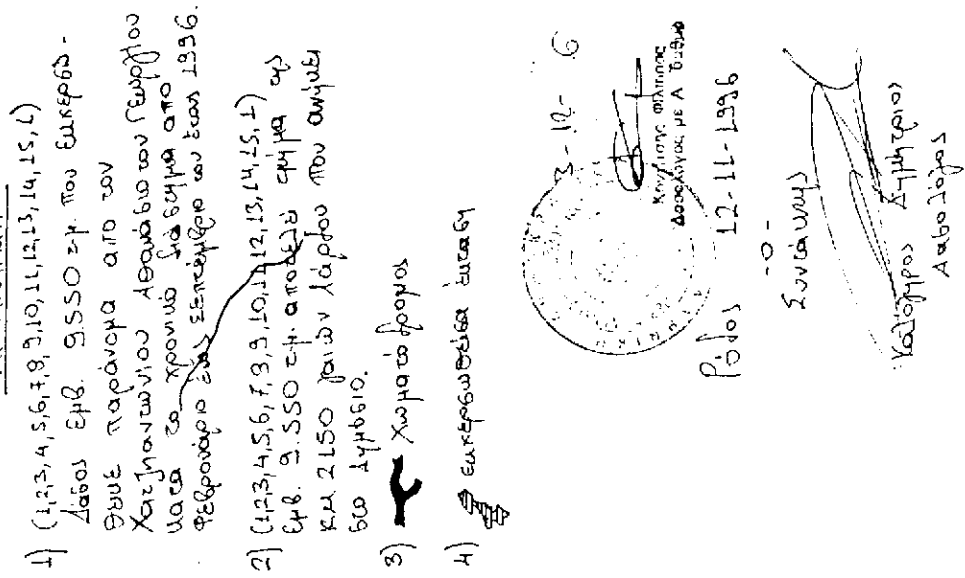 1) (1,2,3,4,5,6,7,8,9,10,11,12,13,14,15,1)
Δάσος εμβ. 9550 τ.μ. που εκχερσώ-
θηκε παράνομα από τον
Χατζηαντωνίου Αθανάσιο του Γεωργίου
κατά το χρονικό διάστημα από
Φεβρουάριο έως Σεπτέμβριο του έτους 1996.
2) (1,2,3,4,5,6,7,8,9,10,11,12,13,14,15,1)
εμβ. 9.550 τ.μ. αποτελεί τμήμα της
ΚΜ 2150 γαιών Λάρδου που ανήκει
στο Δημόσιο.
3) Χωματόδρομος
4) εκχερσωθείσα έκταση
3-12- 6
Φίλιππος
Δασολόγος με Α΄ βαθμό
Ρόδος 12-11-1996
-ο-
Συντάκτης
Καλόγηρος Δημήτριος
Δασολόγος